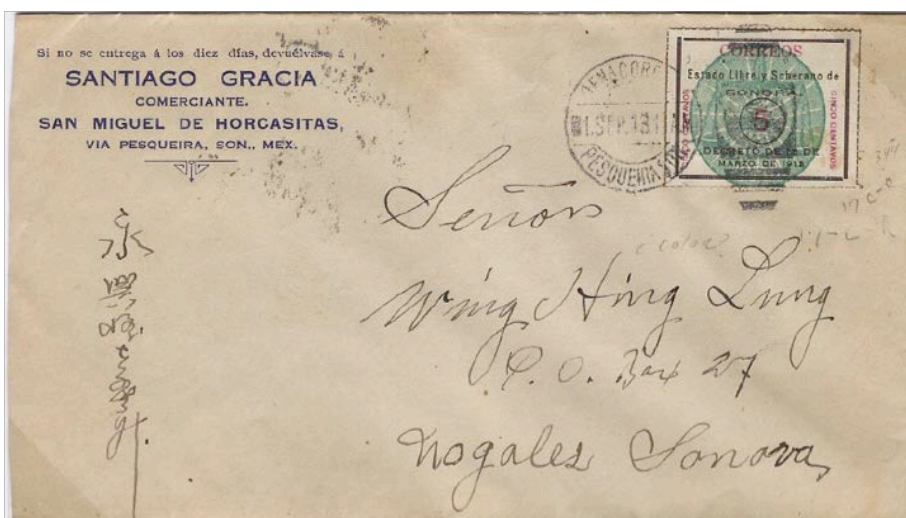 Si no se entrega á los diez días, devuélvase á
SANTIAGO GRACIA
COMERCIANTE.
SAN MIGUEL DE HORCASITAS,
VIA PESQUEIRA, SON., MEX.
CORREOS
Estado Libre y Soberano de
SONORA
CINCO CENTAVOS
5
CINCO CENTAVOS
DECRETO DE
MARZO DE 1913
1.SEP.13
PESQUEIRA
Señor
Wing Hing Lung
P. O. Box 27
Nogales Sonora,